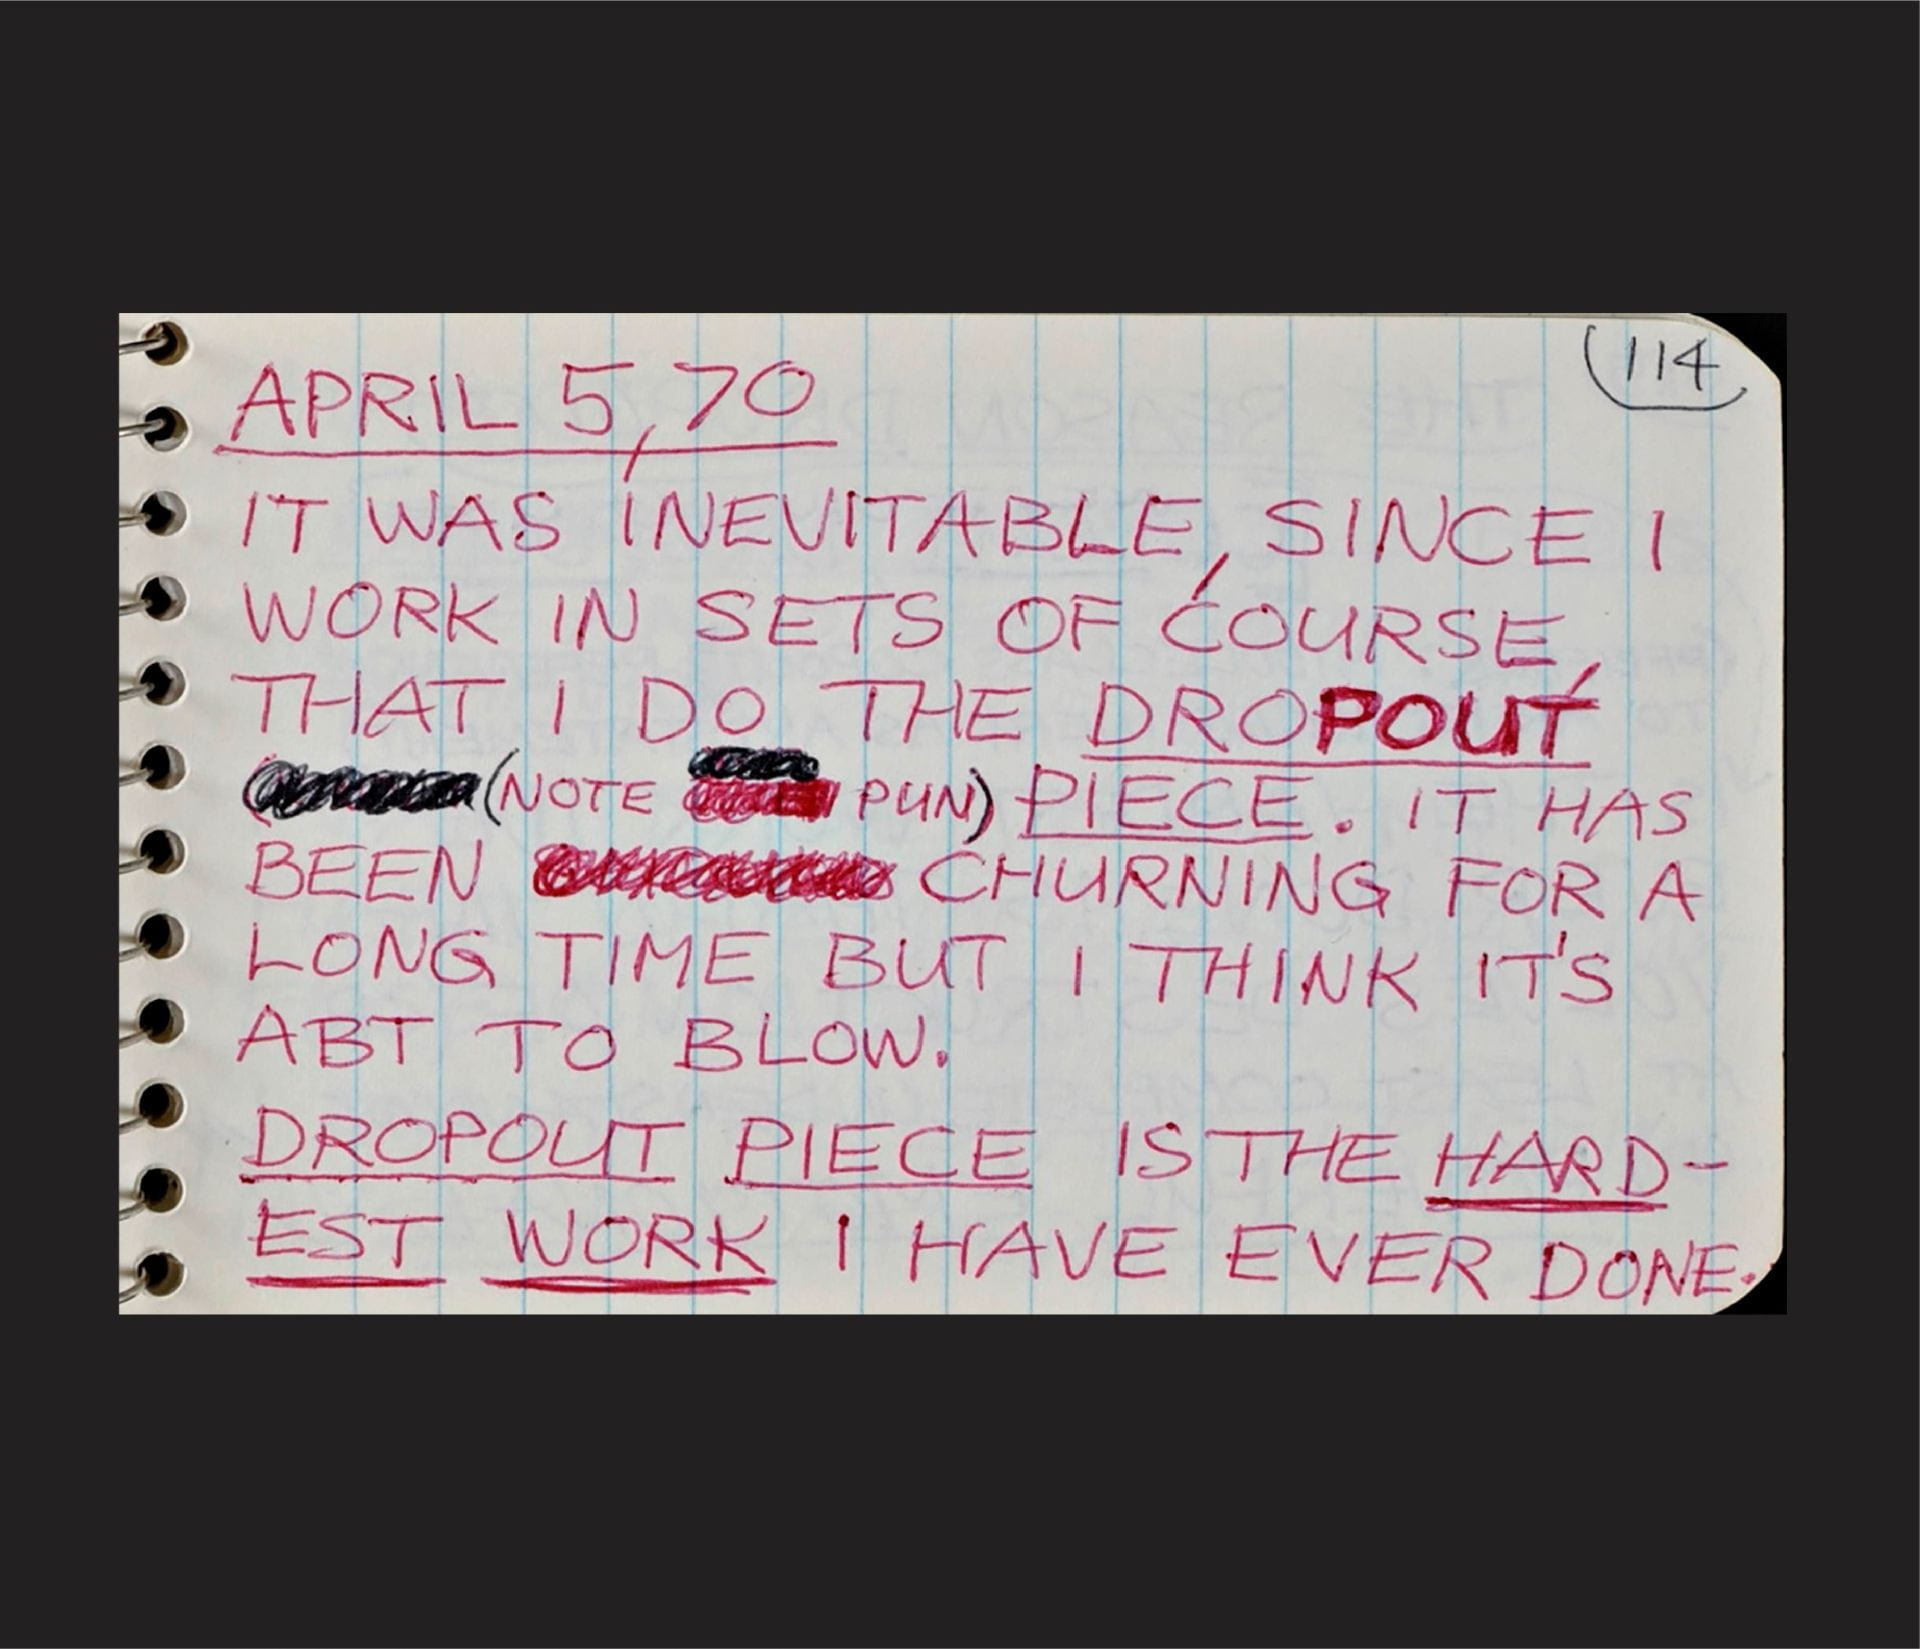 114
APRIL 5, 70
IT WAS INEVITABLE, SINCE I
WORK IN SETS OF COURSE,
THAT I DO THE DROPOUT
(NOTE PUN) PIECE. IT HAS
BEEN CHURNING FOR A
LONG TIME BUT I THINK IT'S
ABT TO BLOW.
DROPOUT PIECE IS THE HARD-
EST WORK I HAVE EVER DONE.